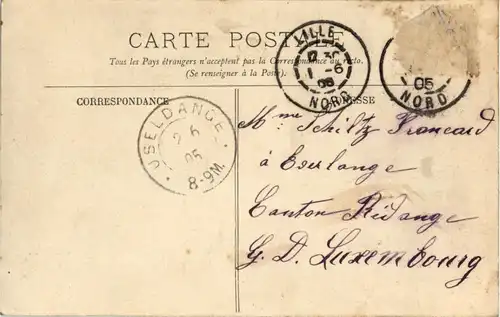 CARTE POSTALE
Tous les Pays étrangers n'acceptent pas la Correspondance au recto.
(Se renseigner à la Poste).
CORRESPONDANCE
ADRESSE
LILLE
1 -6
NORD
05
NORD
USELDANGE
2 6
05
8-9M.
Mme Schiltz
à Everlange
Canton Rédange
G. D. Luxembourg